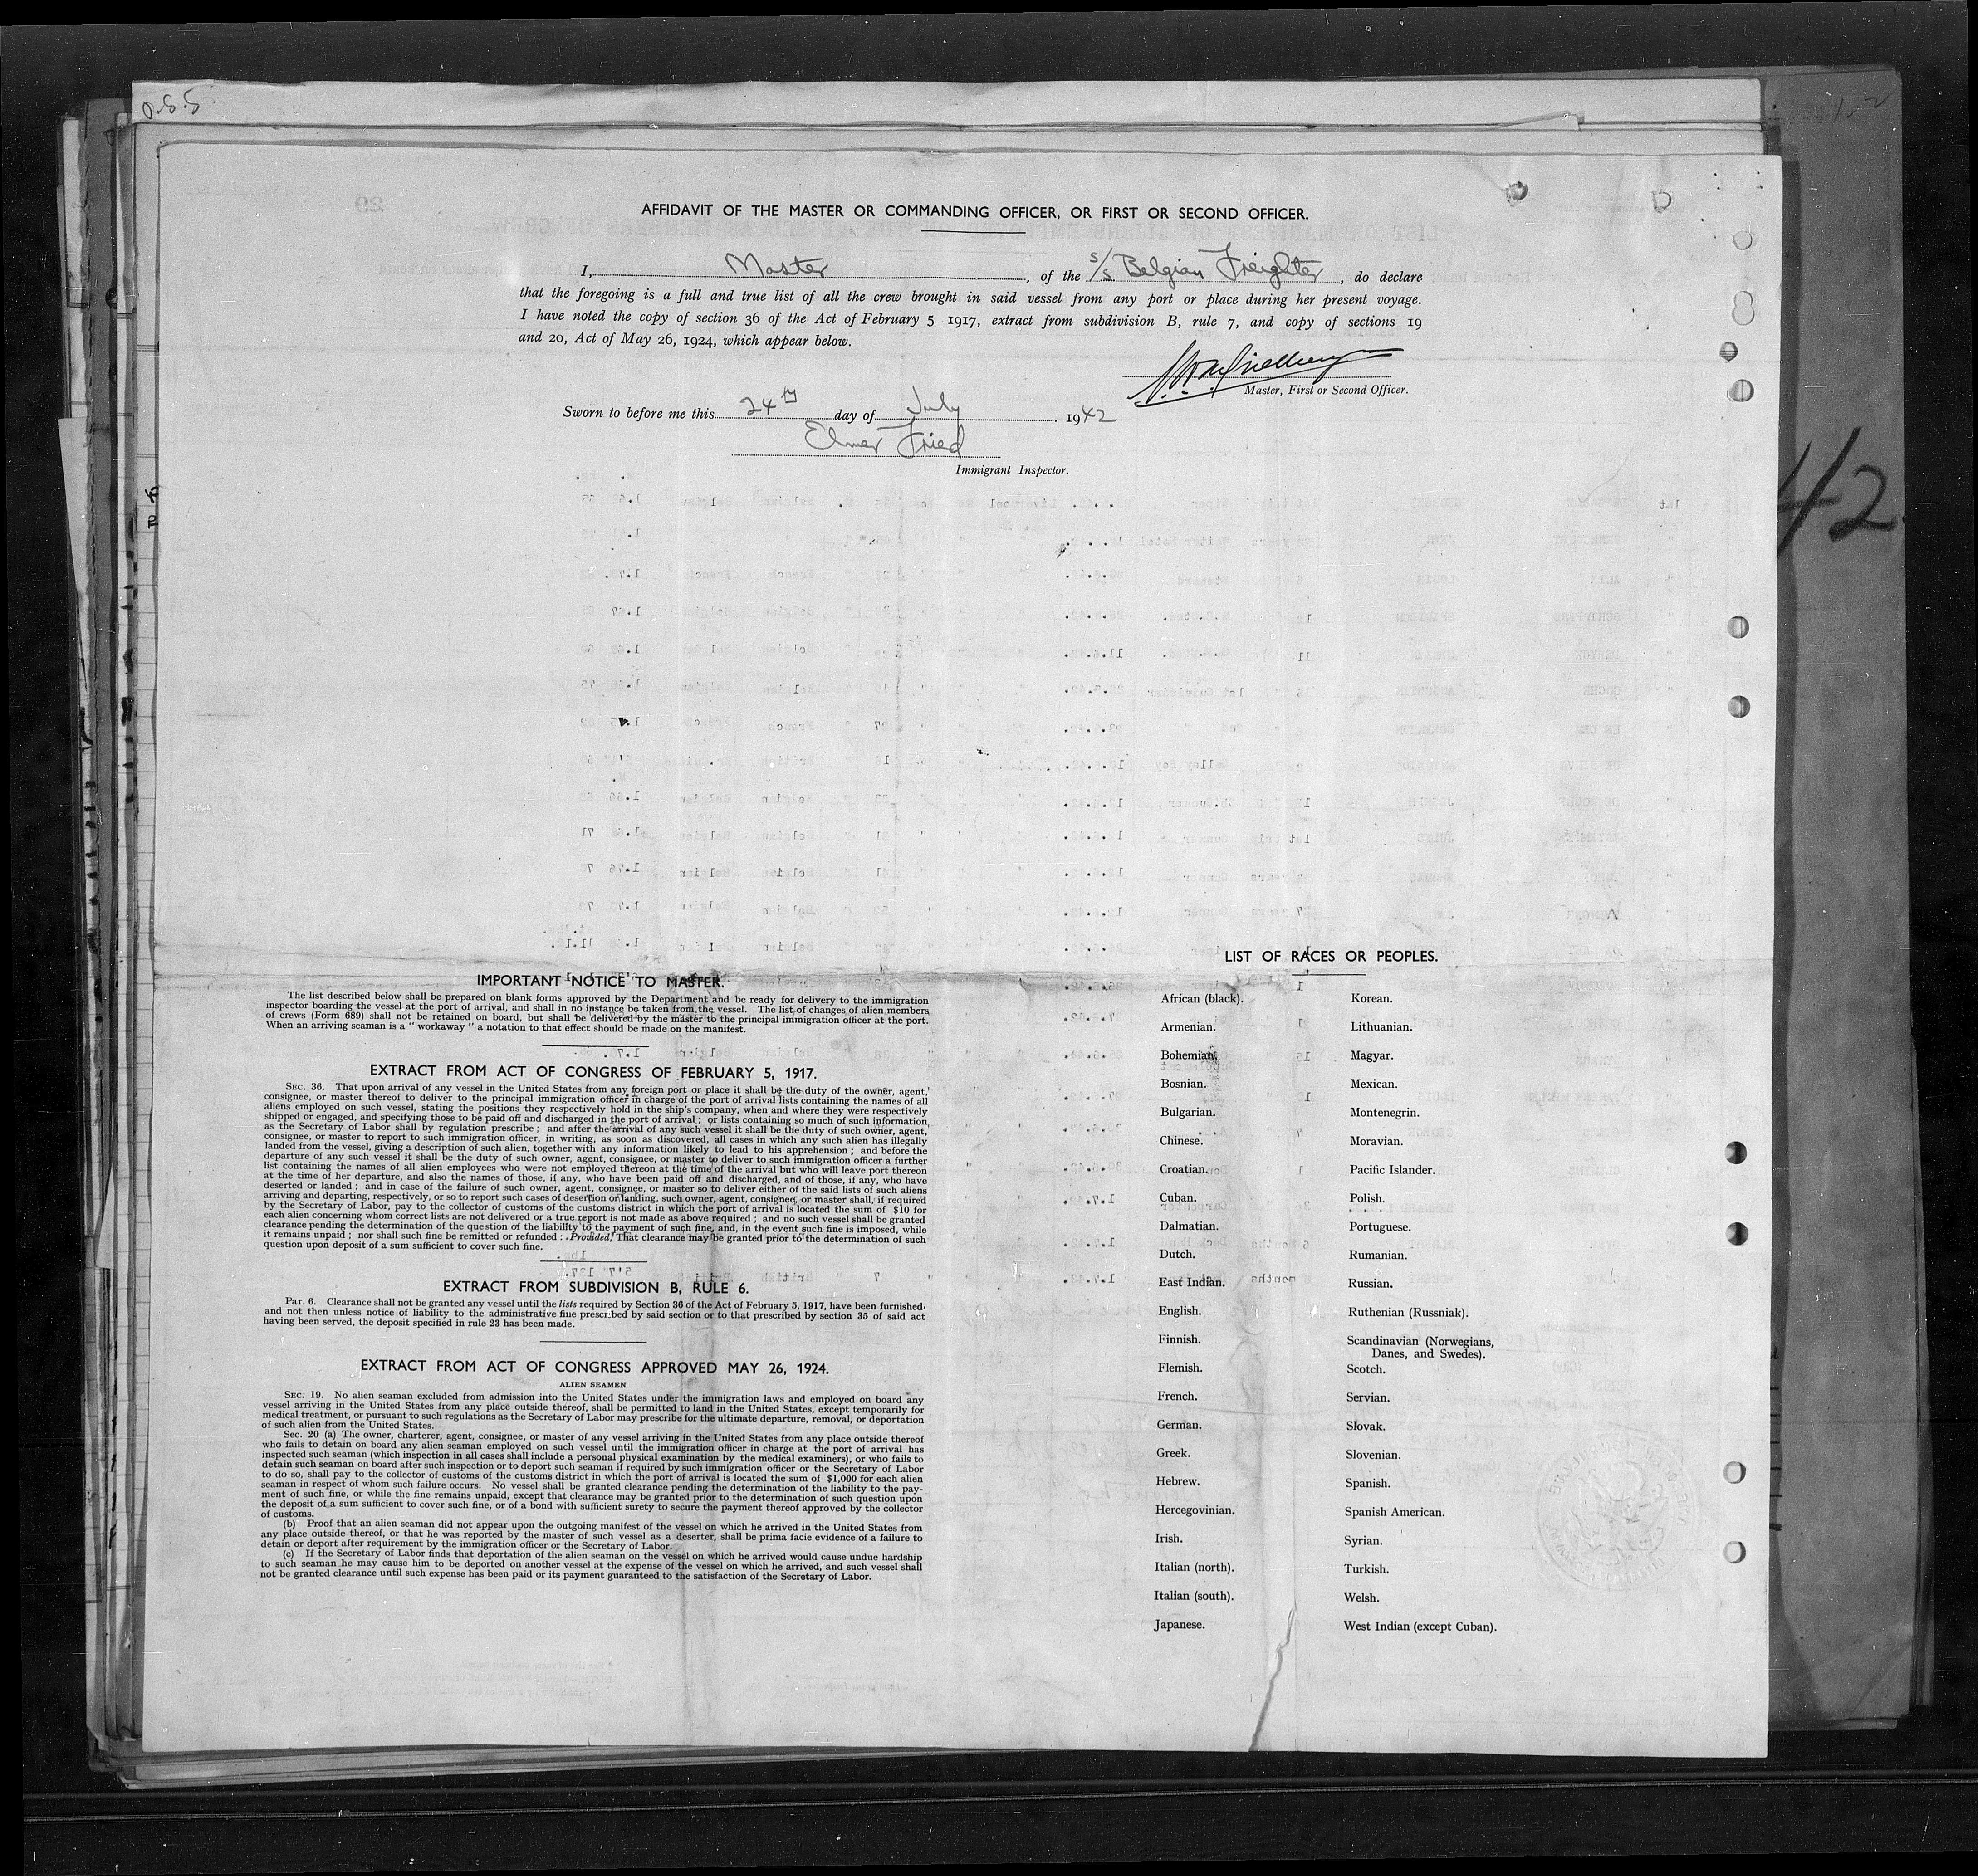 0.8.5
AFFIDAVIT OF THE MASTER OR COMMANDING OFFICER, OR FIRST OR SECOND OFFICER.
I, Master, of the S/S Belgian Freighter, do declare
that the foregoing is a full and true list of all the crew brought in said vessel from any port or place during her present voyage.
I have noted the copy of section 36 of the Act of February 5 1917, extract from subdivision B, rule 7, and copy of sections 19
and 20, Act of May 26, 1924, which appear below.
Master, First or Second Officer.
Sworn to before me this 24th day of July. 1942
Elmer Fried
Immigrant Inspector.
42
IMPORTANT NOTICE TO MASTER.
The list described below shall be prepared on blank forms approved by the Department and be ready for delivery to the immigration
inspector boarding the vessel at the port of arrival, and shall in no instance be taken from the vessel. The list of changes of alien members
of crews (Form 689) shall not be retained on board, but shall be delivered by the master to the principal immigration officer at the port.
When an arriving seaman is a " workaway " a notation to that effect should be made on the manifest.
EXTRACT FROM ACT OF CONGRESS OF FEBRUARY 5, 1917.
SEC. 36. That upon arrival of any vessel in the United States from any foreign port or place it shall be the duty of the owner, agent,
consignee, or master thereof to deliver to the principal immigration officer in charge of the port of arrival lists containing the names of all
aliens employed on such vessel, stating the positions they respectively hold in the ship's company, when and where they were respectively
shipped or engaged, and specifying those to be paid off and discharged in the port of arrival ; or lists containing so much of such information,
as the Secretary of Labor shall by regulation prescribe ; and after the arrival of any such vessel it shall be the duty of such owner, agent,
consignee, or master to report to such immigration officer, in writing, as soon as discovered, all cases in which any such alien has illegally
landed from the vessel, giving a description of such alien, together with any information likely to lead to his apprehension ; and before the
departure of any such vessel it shall be the duty of such owner, agent, consignee, or master to deliver to such immigration officer a further
list containing the names of all alien employees who were not employed thereon at the time of the arrival but who will leave port thereon
at the time of her departure, and also the names of those, if any, who have been paid off and discharged, and of those, if any, who have
deserted or landed ; and in case of the failure of such owner, agent, consignee, or master so to deliver either of the said lists of such aliens
arriving and departing, respectively, or so to report such cases of desertion or landing, such owner, agent, consignee, or master shall, if required
by the Secretary of Labor, pay to the collector of customs of the customs district in which the port of arrival is located the sum of $10 for
each alien concerning whom correct lists are not delivered or a true report is not made as above required ; and no such vessel shall be granted
clearance pending the determination of the question of the liability to the payment of such fine, and, in the event such fine is imposed, while
it remains unpaid ; nor shall such fine be remitted or refunded : Provided, That clearance may be granted prior to the determination of such
question upon deposit of a sum sufficient to cover such fine.
EXTRACT FROM SUBDIVISION B, RULE 6.
PAR. 6. Clearance shall not be granted any vessel until the lists required by Section 36 of the Act of February 5, 1917, have been furnished,
and not then unless notice of liability to the administrative fine prescribed by said section or to that prescribed by section 35 of said act
having been served, the deposit specified in rule 23 has been made.
EXTRACT FROM ACT OF CONGRESS APPROVED MAY 26, 1924.
ALIEN SEAMEN
SEC. 19. No alien seaman excluded from admission into the United States under the immigration laws and employed on board any
vessel arriving in the United States from any place outside thereof, shall be permitted to land in the United States, except temporarily for
medical treatment, or pursuant to such regulations as the Secretary of Labor may prescribe for the ultimate departure, removal, or deportation
of such alien from the United States.
Sec. 20 (a) The owner, charterer, agent, consignee, or master of any vessel arriving in the United States from any place outside thereof
who fails to detain on board any alien seaman employed on such vessel until the immigration officer in charge at the port of arrival has
inspected such seaman (which inspection in all cases shall include a personal physical examination by the medical examiners), or who fails to
detain such seaman on board after such inspection or to deport such seaman if required by such immigration officer or the Secretary of Labor
to do so, shall pay to the collector of customs of the customs district in which the port of arrival is located the sum of $1,000 for each alien
seaman in respect of whom such failure occurs. No vessel shall be granted clearance pending the determination of the liability to the pay-
ment of such fine, or while the fine remains unpaid, except that clearance may be granted prior to the determination of such question upon
the deposit of a sum sufficient to cover such fine, or of a bond with sufficient surety to secure the payment thereof approved by the collector
of customs.
(b) Proof that an alien seaman did not appear upon the outgoing manifest of the vessel on which he arrived in the United States from
any place outside thereof, or that he was reported by the master of such vessel as a deserter, shall be prima facie evidence of a failure to
detain or deport after requirement by the immigration officer or the Secretary of Labor.
(c) If the Secretary of Labor finds that deportation of the alien seaman on the vessel on which he arrived would cause undue hardship
to such seaman he may cause him to be deported on another vessel at the expense of the vessel on which he arrived, and such vessel shall
not be granted clearance until such expense has been paid or its payment guaranteed to the satisfaction of the Secretary of Labor.
LIST OF RACES OR PEOPLES.
African (black).
Armenian.
Bohemian.
Bosnian.
Bulgarian.
Chinese.
Croatian.
Cuban.
Dalmatian.
Dutch.
East Indian.
English.
Finnish.
Flemish.
French.
German.
Greek.
Hebrew.
Hercegovinian.
Irish.
Italian (north).
Italian (south).
Japanese.
Korean.
Lithuanian.
Magyar.
Mexican.
Montenegrin.
Moravian.
Pacific Islander.
Polish.
Portuguese.
Rumanian.
Russian.
Ruthenian (Russniak).
Scandinavian (Norwegians,
Danes, and Swedes).
Scotch.
Servian.
Slovak.
Slovenian.
Spanish.
Spanish American.
Syrian.
Turkish.
Welsh.
West Indian (except Cuban).